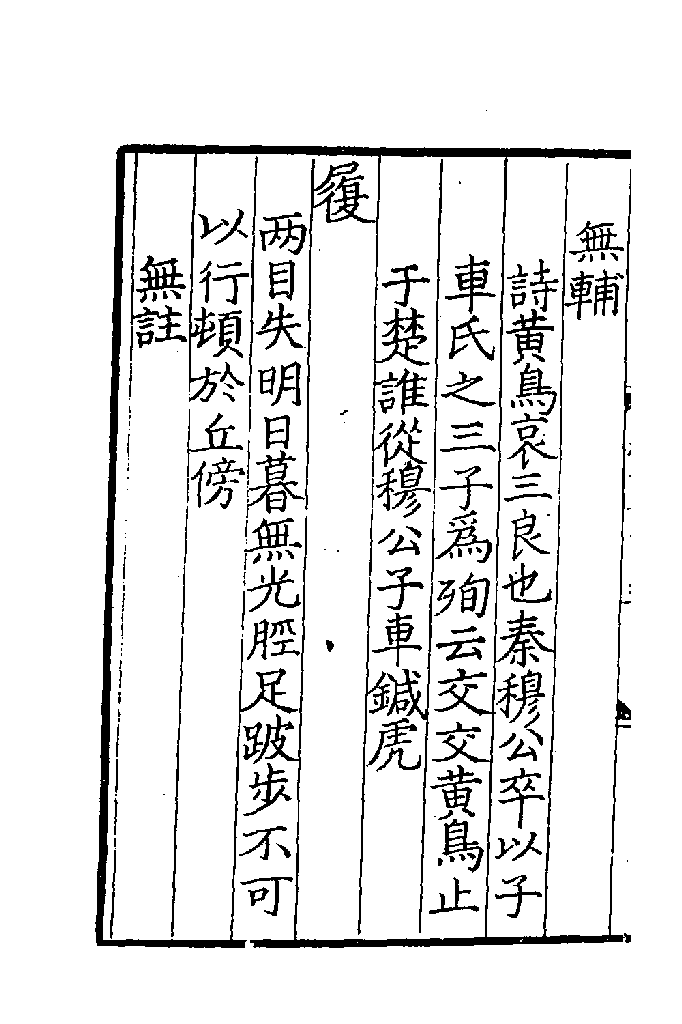 無輔
詩黄鳥哀三良也秦穆公卒以子
車氏之三子爲殉云交交黄鳥止
于楚誰從穆公子車鍼虎
履
两目失明日暮無光脛足跛步不可
以行頓於丘傍
無註